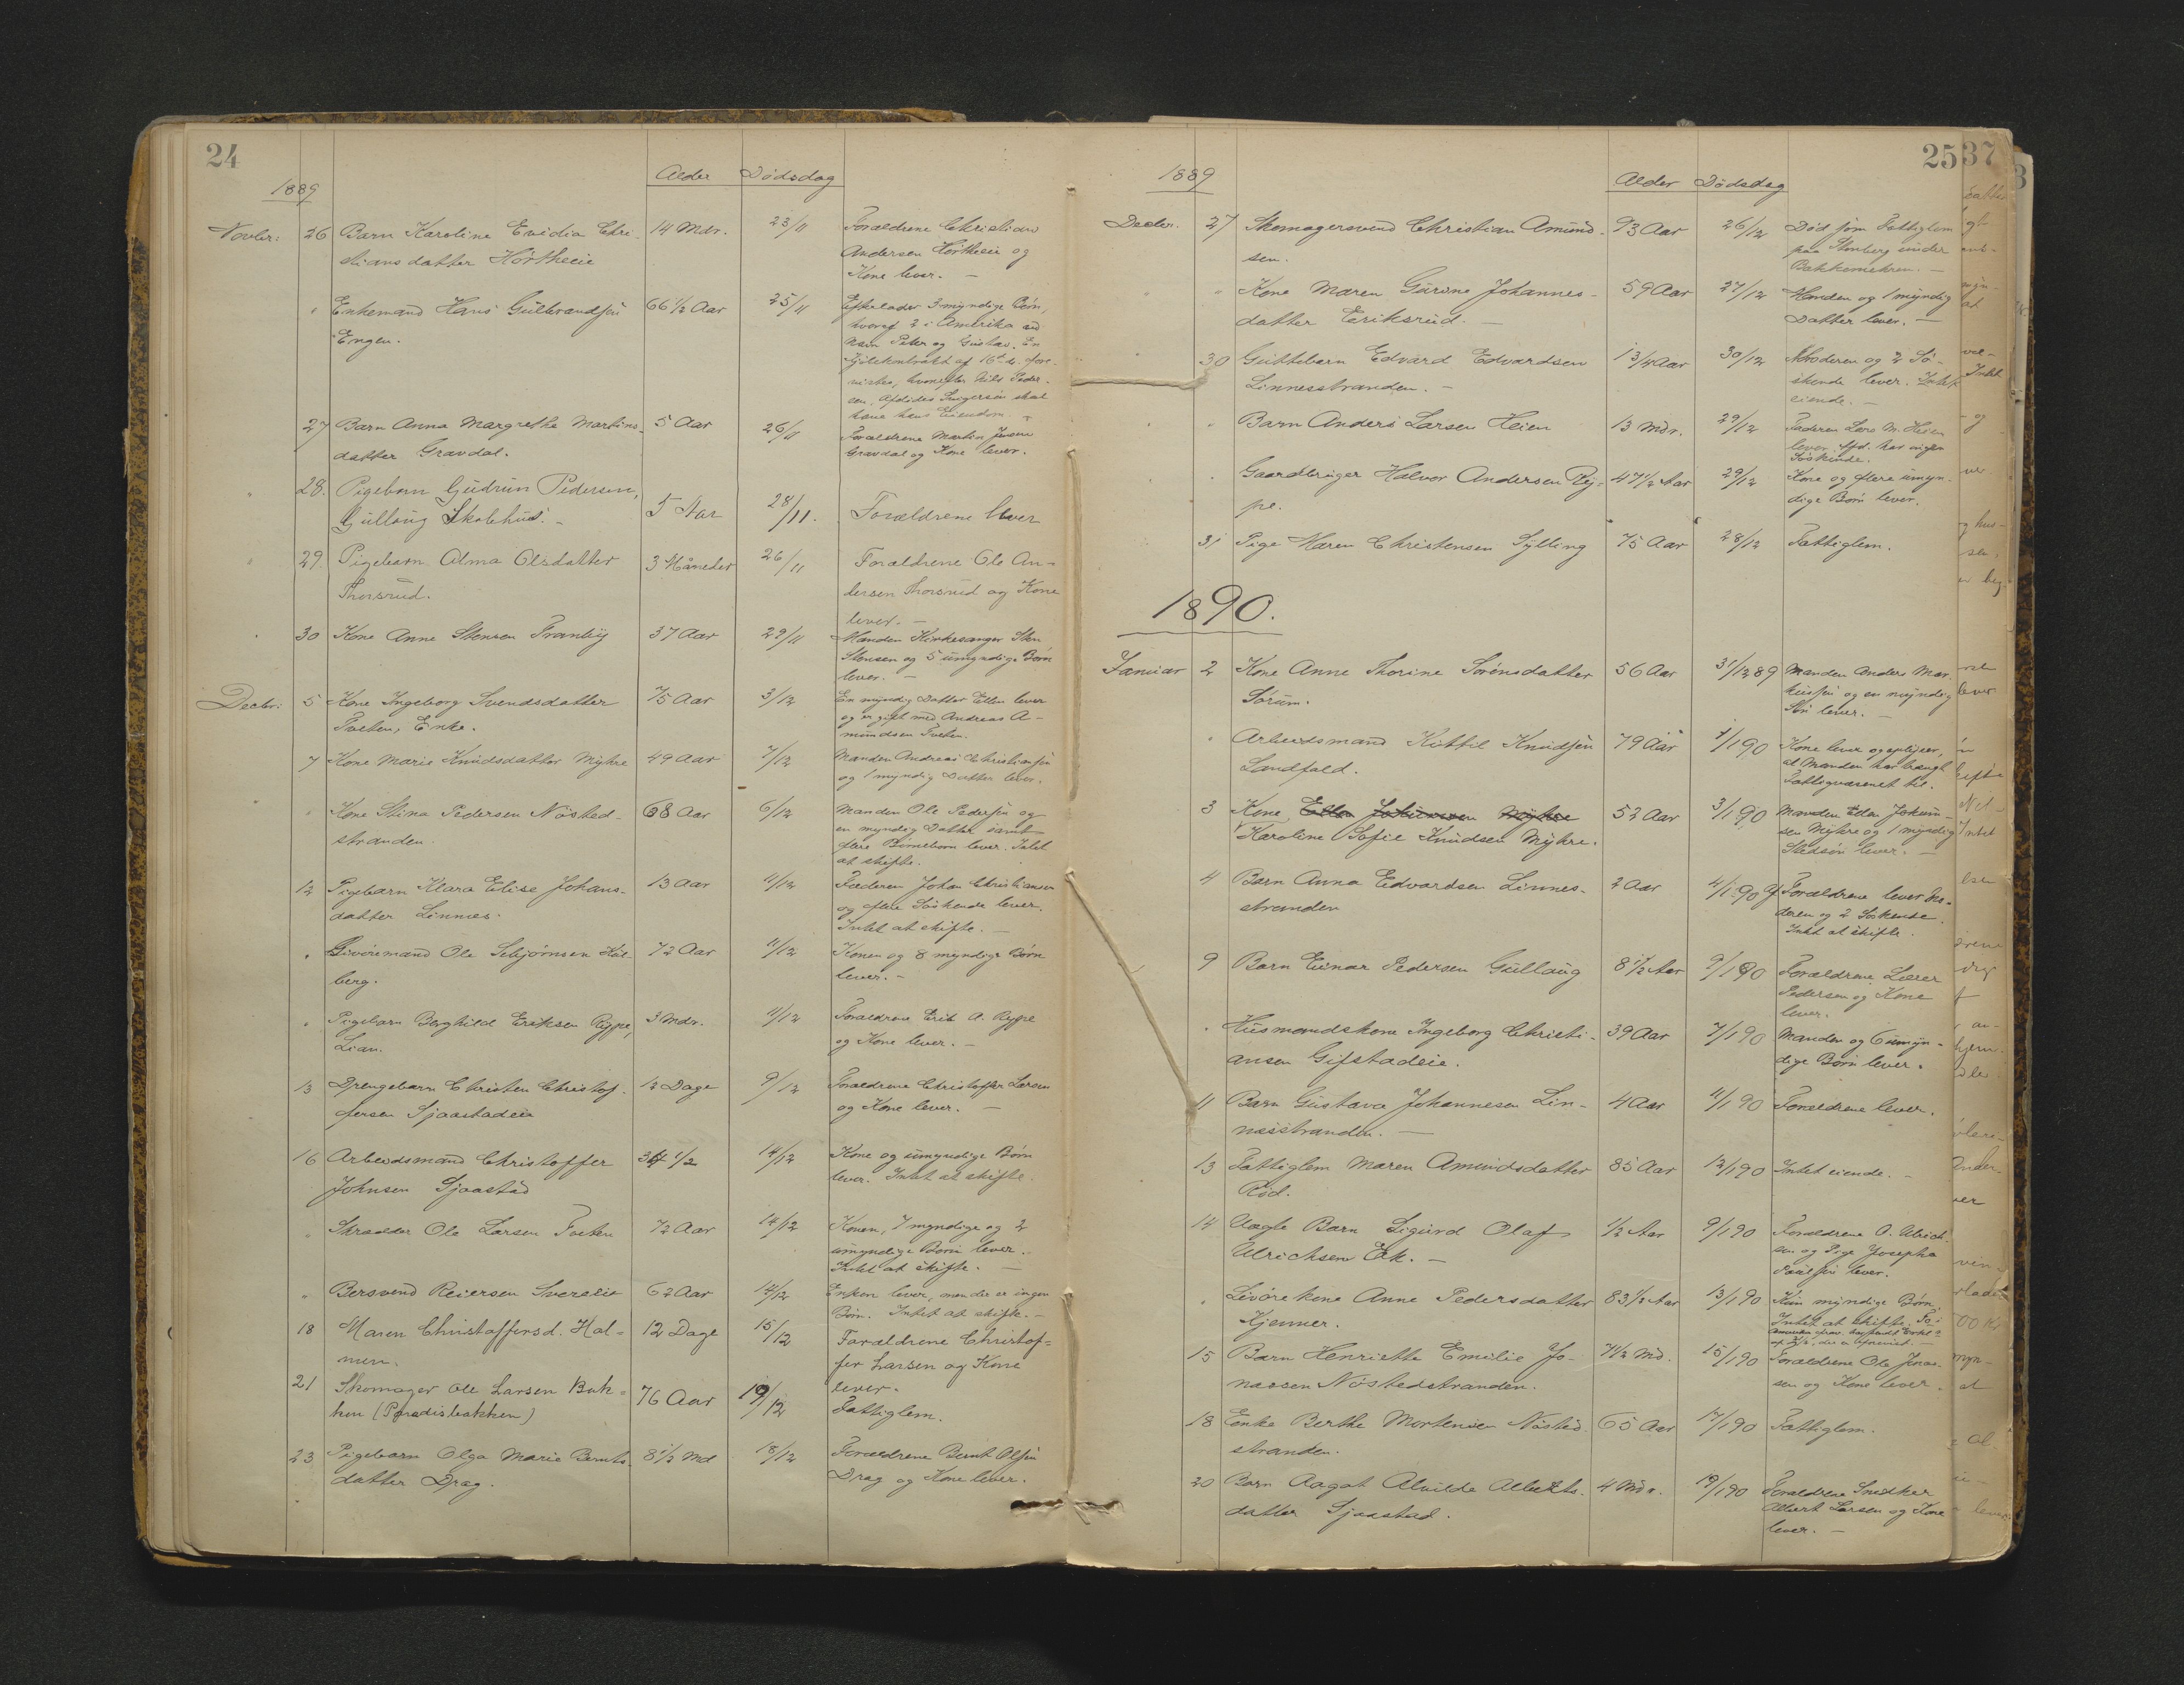 24
1889
Alder Dødsdag
Novbr: 26 Barn Karoline Evidia Chri- 14 Mdr. 23/11 Forældrene Christian
stiansdatter Hørtheeie Andersen Hørtheeie og
Kone lever. –
" Enkemand Hans Gulbrandsen 66 1/2 Aar 25/11 Efterlader 3 myndige Børn,
Engen. hvoraf 2 i Amerika ved
Navn Peter og Gustav. En
af 16de
hvorefter Nils Peder-
sen, Afdødes Svigersøn skal
have hans Eiendom. –
27 Barn Anna Margrethe Martins- 5 Aar 26/11 Forældrene Martin Jensen
datter Gravdal. Gravdal og Kone lever.
" 28. Pigebarn Gudrun Pedersen, 5 Aar 28/11. Forældrene lever
Gullaug Skolehus. –
" 29. Pigebarn Alma Olsdatter 3 Måneder 26/11 Forældrene Ole An-
Thorsrud. dersen Thorsrud og Kone
lever. –
" 30 Kone Anne Stensen Tranby 37 Aar 29/11 Manden Kirkesanger Sten
Stensen og 5 umyndige Børn
lever. –
Decbr: 5 Kone Ingeborg Svendsdatter 75 Aar 3/12 En myndig Datter Ellen lever
Tveten, Enke. og er gift med Andreas A-
mundsen Tveten.
" 7 Kone Marie Knudsdatter Myhre 49 Aar 7/12 Manden Andreas Christiansen
og 1 myndig Datter lever.
" " Kone Stina Pedersen Nøsted- 68 Aar 6/12 Manden Ole Pedersen og
stranden. en myndig Datter samt
flere Børnebørn lever. Intet
at skifte.
12 Pigebarn Klara Elise Johans- 13 Aar 11/12 Faderen Johan Christiansen
datter Linnes. og flere Søskende lever.
Intet at skifte. –
" Livøremand Ole Sebjørnsen Kol- 72 Aar 11/12 Konen og 8 myndige Børn
berg. lever. –
" Pigebarn Borghild Eriksen Rype, 3 Mdr. 11/12 Forældrene Erik A. Rype
Lian. og Kone lever. –
13 Drengebarn Christen Christof- 12 Dage 9/12 Forældrene Christoffer Larsen
fersen Sjaastadeie og Kone lever. –
16 Arbeidsmand Christoffer 34 1/2 14/12 Kone og umyndige Børn
Johnsen Sjaastad lever. Intet at skifte.
" Skrædder Ole Larsen Tveten 72 Aar 14/12 Konen, 7 myndige og 2
umyndige Børn lever.
Intet at skifte. –
" Bersvend Reiersen Sverseie 62 Aar 14/12 Enken lever, men der er ingen
Børn. Intet at skifte. –
18 Maren Christoffersd. Hal= 12 Dage 15/12 Forældrene Christof=
men. fer Larsen og Kone
lever.
21 Skomager Ole Larsen Bak= 76 Aar 19/12 Fattiglem.
ken (Paradisbakken)
23 Pigebarn Olga Marie Bernts- 8 1/2 Md 18/12 Forældrene Bernt Olsen
datter Drag. Drag og Kone lever.
25
1889
Alder Dødsdag
Decbr. 27 Skomagersvend Christian Amund- 93 Aar 26/12 Død som Fattiglem
sen. paa Stenberg under
" " Kone Maren Gurine Johannes- 59 Aar 27/12 Manden og 1 myndig
datter Eriksrud. – Datter lever. –
30 Guttebarn Edvard Edvardsen 1 3/4 Aar 30/12 Moderen og 2 Sø-
Linnesstranden. – skende lever. Intet
eiende. –
" Barn Anders Larsen Heien 13 Mdr. 29/12 Faderen Lars M. Heien
lever. Afd. har ingen
Søskende.
" Gaardbruger Halvor Andersen Ry- 47 1/2 Aar 29/12 Kone og flere umyn-
pe. dige Børn lever.
31 Pige Maren Christensen Sylling 75 Aar 28/12 Fattiglem.
1890.
Januar 2 Kone Anne Thorine Sørensdatter 56 Aar 31/12 89 Manden Anders Mar-
Sørum. kussen og en myndig
Søn lever. –
" Arbeidsmand Kittil Knudsen 79 Aar 1/1 90 Kone lever og oplyser,
Landfald. at Manden har trængt
Fattigvæsenet til.
3 Kone Ellen Johansen Myhre 52 Aar 3/1 90 Manden Eden Jokum-
Karoline Sofie Knudsen Myhre. sen Myhre og 1 myndig
Stedsøn lever. –
4 Barn Anna Edvardsen Linnes- 2 Aar 4/1 90 Af Forældrene lever Mo-
stranden deren og 2 Søskende.
Intet at skifte.
9 Barn Einar Pedersen Gullaug 8 1/2 Aar 9/1 90 Forældrene Lærer
Pedersen og Kone
lever.
" Husmandskone Ingeborg Christi- 39 Aar 7/1 90 Manden og 6 umyn-
ansen Gifstadeie. dige Børn lever.
11 Barn Gustava Johannesen Lin- 4 Aar 11/1 90 Forældrene lever.
nesstranden. –
13 Fattiglem Maren Amundsdatter 85 Aar 12/1 90 Intet eiende. –
Rød.
14 Uægte Barn Sigurd Olaf 1/2 Aar 9/1 90 Forældrene O. Ulrich-
Ulrichsen Eik. – sen og Pige Josepha
Paulsen lever.
" Livørekone Anne Pedersdatter 83 1/2 Aar 13/1 90 Kun myndige Børn.
Kjenner. Intet at skifte.
15 Barn Henriette Emilie Jo- 7 1/2 Md. 15/1 90 Forældrene Ole Jonas-
nassen Nøstedstranden. sen og Kone lever.
18 Enke Berthe Mortensen Nøsted- 65 Aar 17/1 90 Fattiglem.
stranden.
20 Barn Aagot Alvilde Alberts- 4 Mdr. 19/1 90 Forældrene Snedker
datter Sjaastad. Albert Larsen og Kone
lever. –
37